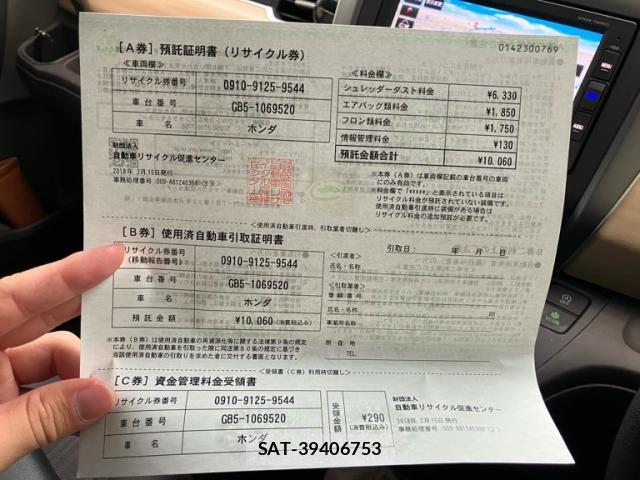 0142300769
［A券］預託証明書（リサイクル券）
≪車両欄≫
リサイクル券番号 0910-9125-9544
車台番号 GB5-1069520
車 名 ホンダ
≪料金欄≫
シュレッダーダスト料金 ¥6,330
エアバッグ類料金 ¥1,850
フロン類料金 ¥1,750
情報管理料金 ¥130
預託金額合計 ¥10,060
財団法人
自動車リサイクル促進センター
2018年 2月15日発行
※本券（A券）は車両欄記載の車台番号の車両
にのみ有効です。
※料金欄で「*****」と表示されている項目は
リサイクル料金が預託されていない装備です。
使用済自動車引渡時に装備がある場合は
リサイクル料金の追加預託が必要です。
＜使用済自動車引渡時、引取業者切離し＞
［B券］使用済自動車引取証明書
引取日： 年 月 日
リサイクル券番号
(移動報告番号) 0910-9125-9544
車台番号 GB5-1069520
車 名 ホンダ
預託金額 ¥10,060(消費税込み)
＜引渡者＞
氏名・名称
＜引取業者＞
登録番号
氏名・名称 印
事業所名称
所在地
TEL
※本券（B券）は使用済自動車の再資源化等に関する法律第9条の規定
により、使用済自動車を引取った際に同法第80条の規定に基づき
当該使用済自動車の引取りを求めた者に交付する書面となります。
＜受領書（C券）利用時切離し＞
［C券］資金管理料金受領書
リサイクル券番号 0910-9125-9544
車台番号 GB5-1069520
車 名 ホンダ
受領金額 ¥290
(消費税込み)
財団法人
自動車リサイクル促進センター
2018年 2月15日発行
SAT-39406753